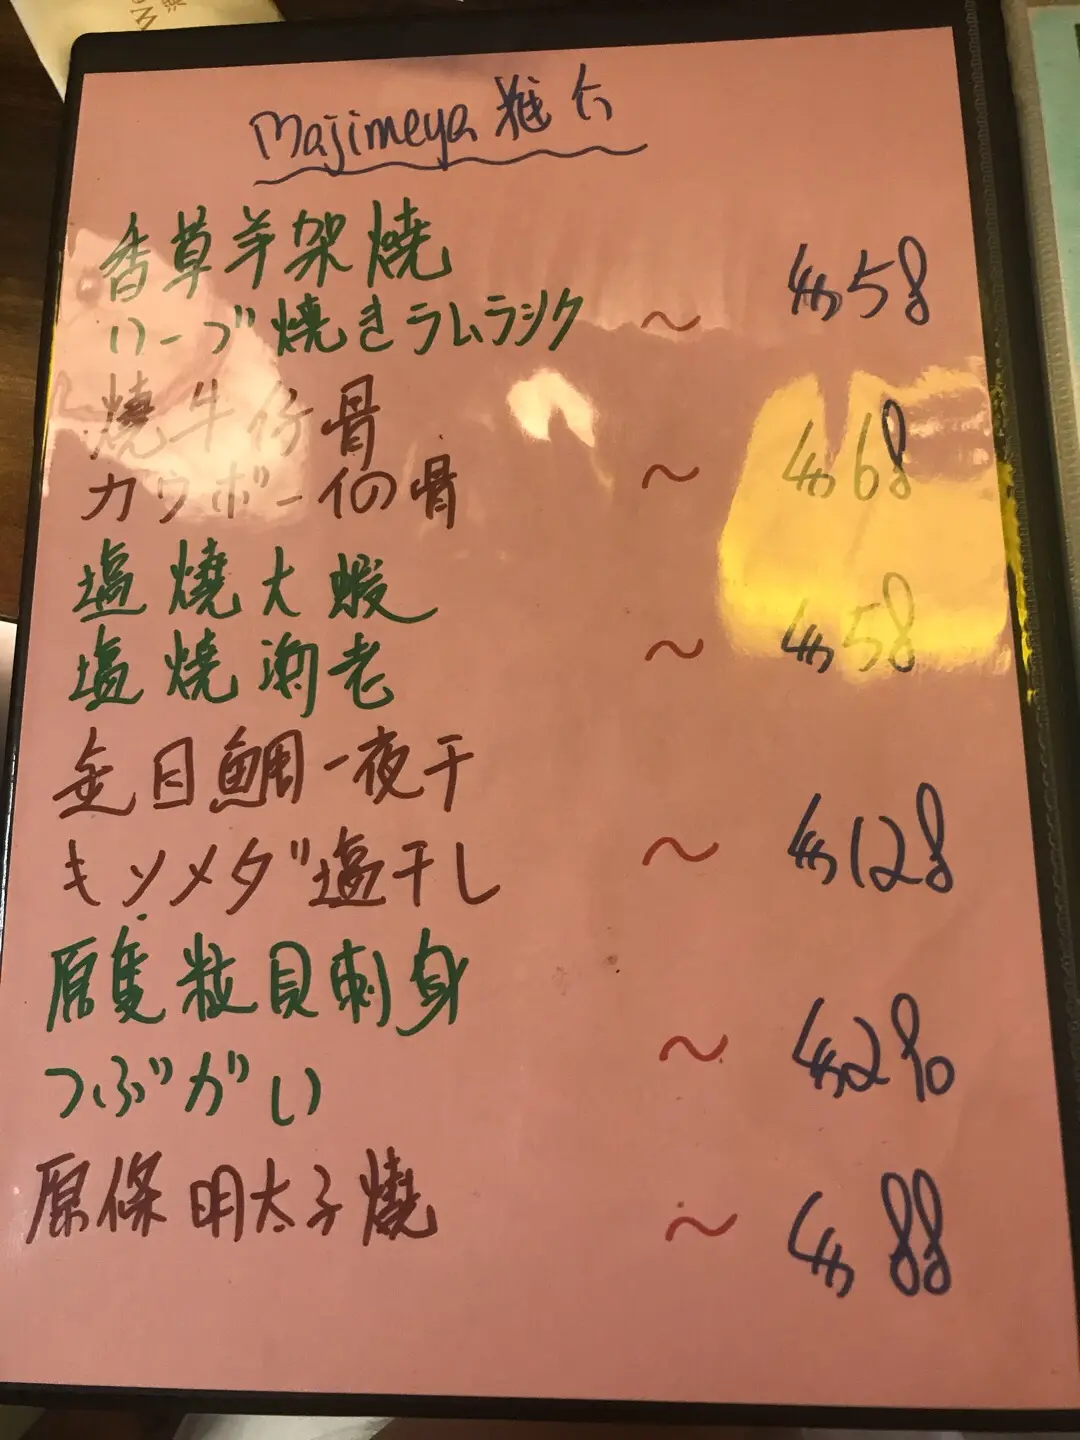 Majimeya 推介
香草羊架燒
ハーブ焼きラムラック
~ $58
燒牛仔骨
カウボーイの骨
~ $68
塩燒大蝦
塩焼海老
~ $58
金目鯛一夜干
キンメダ塩干し
~ $128
原隻粒貝刺身
つぶがい
~
原條明太子燒
~ $88